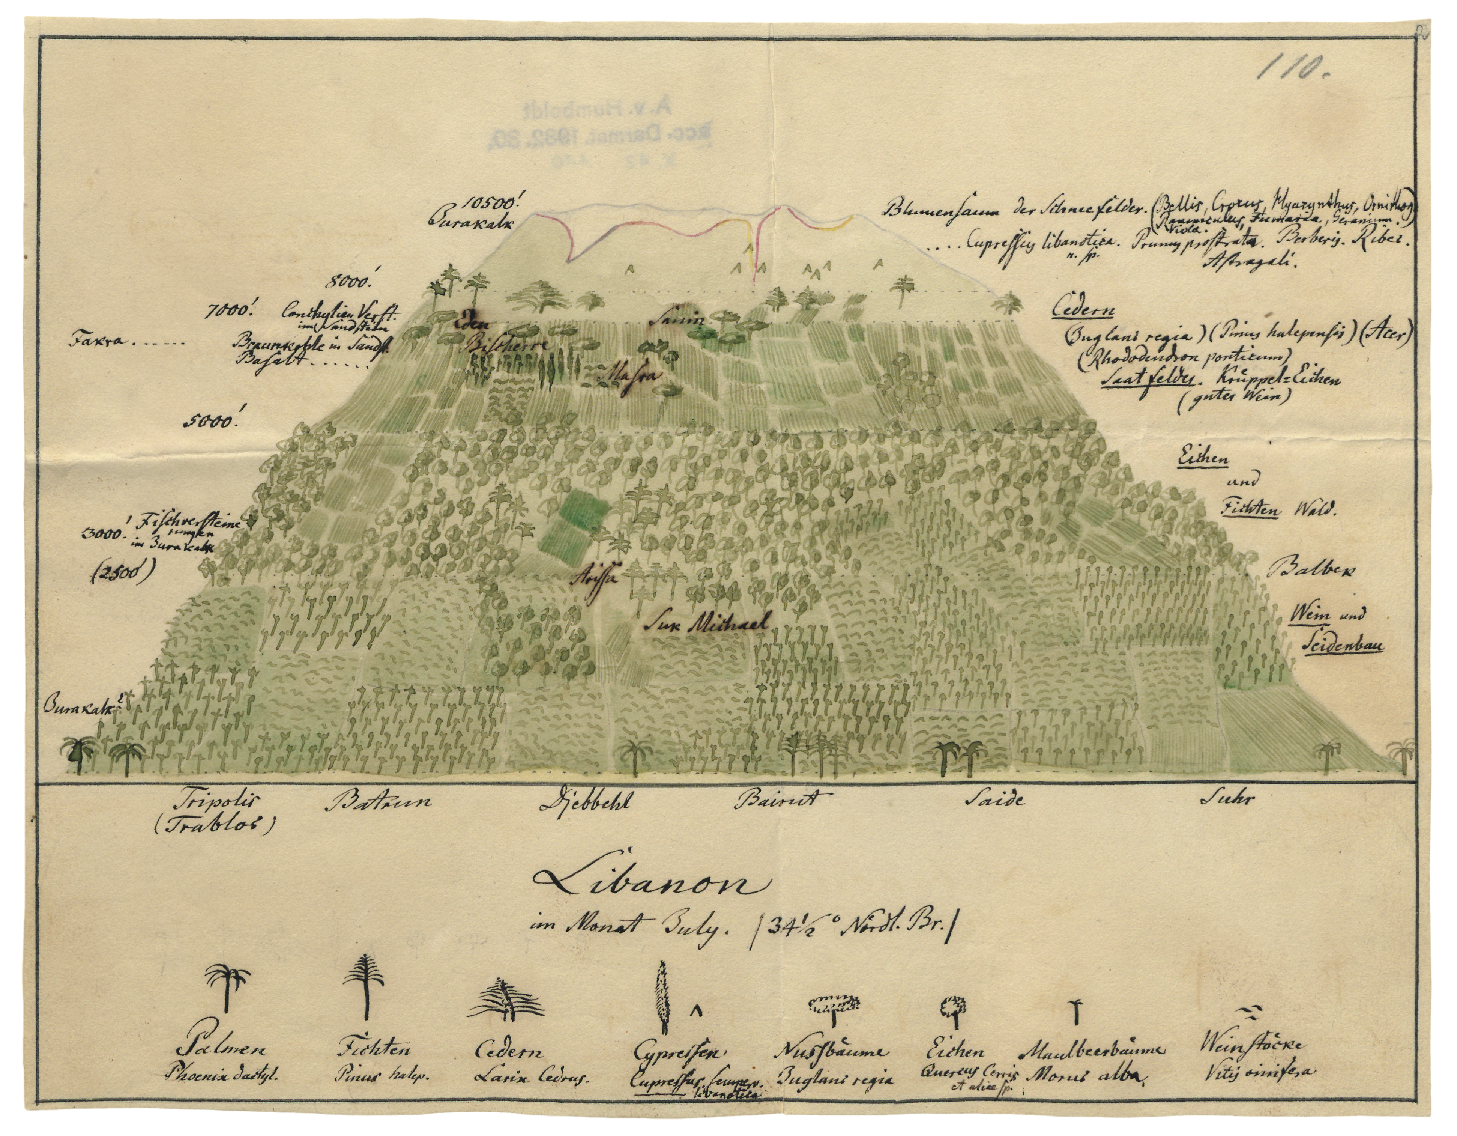 110.
A. v. Humboldt
acc. Darmst. 1932. 30.
10500'
Jurakalk
Blumensaum der Schneefelder. (Bellis, Crocus, Hyazynthus, Ornithog.
Ranunculus, Fumaria, Geranium.
Viola.)
.... Cupressus libanotica. Prunus prostrata. Berberis. Ribes.
n. sp.
Astragali.
8000'
7000' Conchylien Verst.
im Sandstein
Fakra ...... Braunkohle in Sandst.
Basalt ......
Eden
Sanin
Bischerre
Masra
Cedern
(Juglans regia) (Pinus halepensis) (Acer)
(Rhododendron ponticum)
Saatfelder. Krüppel=Eichen
(guter Wein)
5000'
Eichen
und
Fichten Wald.
3000' Fischversteine
rungen
im Jurakalk
(2500')
Arissa
Balbek
Suk Michael
Wein und
Seidenbau
Jurakalk?
Tripolis
(Trablos)
Batrun
Djebbehl
Bairut
Saide
Suhr
Libanon
im Monat July. (34½° Nördl. Br.)
Palmen
Phoenix dactyl.
Fichten
Pinus halep.
Cedern
Larix Cedrus.
Cypressen
Cupressus semperv.
libanotica
Nussbäume
Juglans regia
Eichen
Quercus Cerris
et aliae sp.
Maulbeerbäume
Morus alba
Weinstöcke
Vitis vinifera